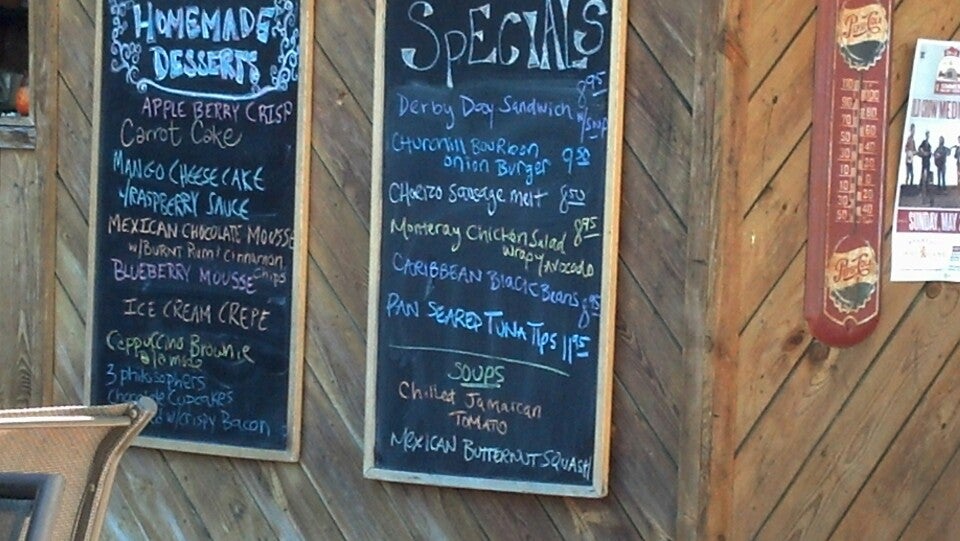 HOMEMADE
DESSERTS
APPLE BERRY CRISP
Carrot Cake
MANGO CHEESE CAKE
w/RASPBERRY SAUCE
MEXICAN CHOCOLATE MOUSSE
w/Burnt Rum! Cinnamon
Chips
BLUEBERRY MOUSSE
ICE CREAM CREPE
Cappuccino Brownie
a la mode
3 philosophers
Chocolate Cupcakes
w/crispy Bacon
SpECIAlS
Derby Day Sandwich 8.95
w/soup
CHURCHILL BOURBON
onion Burger 9.50
CHORIZO Sausage melt 8.50
Monteray Chicken Salad 8.95
wrap y Avocado
CARIBBEAN BlACK Beans 8.95
PAN SEARED TUNA TIPS 11.95
SOUPS
Chilled Jamaican
TOMATO
MEXICAN BUTTERNUT SQUASH
PEPSI-COLA
PEPSI-COLA
OLD CROW MEDI
SUNDAY, MAY